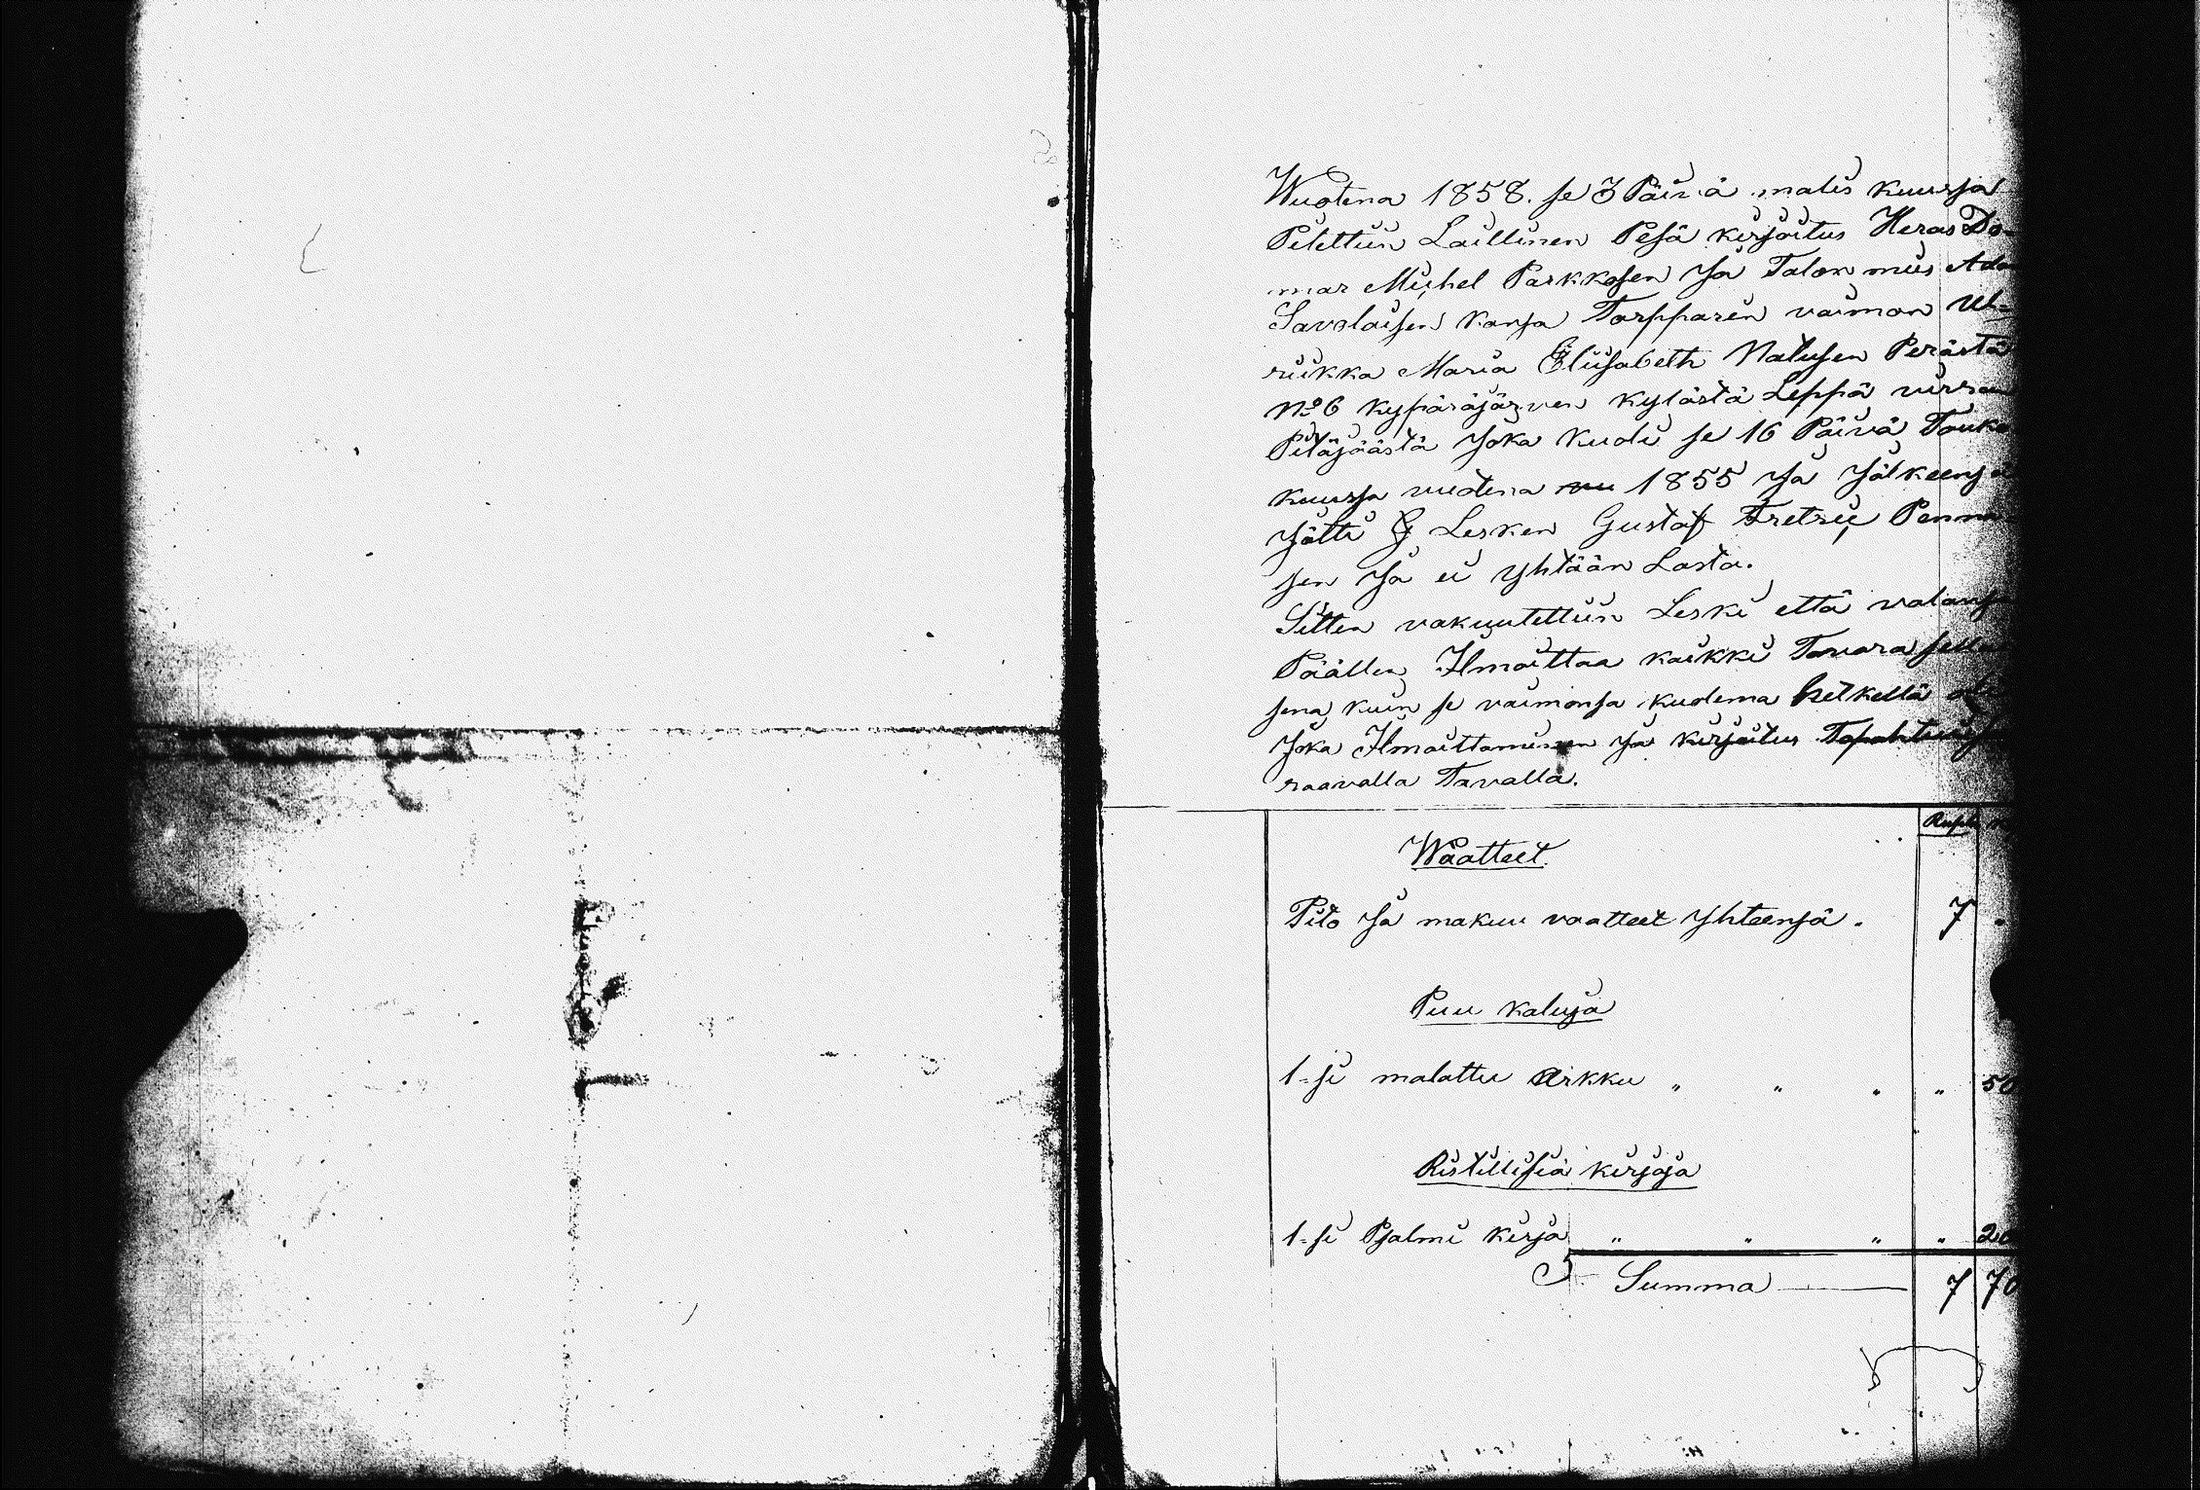 Wuotena 1858. se 3 Päivä malis kuussa
Pitettiin Laillinen Pesä kirjoitus Heras Do-
mar Michel Parkkosen Ja Talon mies Ada
Savolaisen kansa Torpparin vaimon Ul-
riikka Maria Elisabeth Natusen Perästä
No 6 kypäräjärven kylästä Leppä virran
Pitäjäästä Joka kuoli se 16 Päivä Touko
kuussa vuotena 1855 Ja Jälkeensä
Jätti Lesken Gustaf Fretric Penna-
sen Ja ei Yhtään Lasta.
Sitten vakuutettiin Leski että valansa
Päällen Ilmoittaa kaikki Tavara sella
sena kuin se vaimonsa kuolema hetkellä oli
Joka Ilmoittaminen Ja kirjoitus Tapahtui
raavalla Tavalla.
Rupl
Waatteet
Pito Ja makuu vaatteet Yhteensä . 7 .
Puu kaluja
1-si malattu Arkku " " " " 50
Ristillisiä kirjoja
1-si Psalmi kirja " " " " 20
Summa 7 70